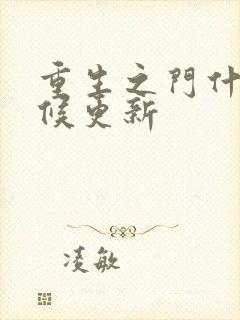 重生之門什
候更新
凌敏